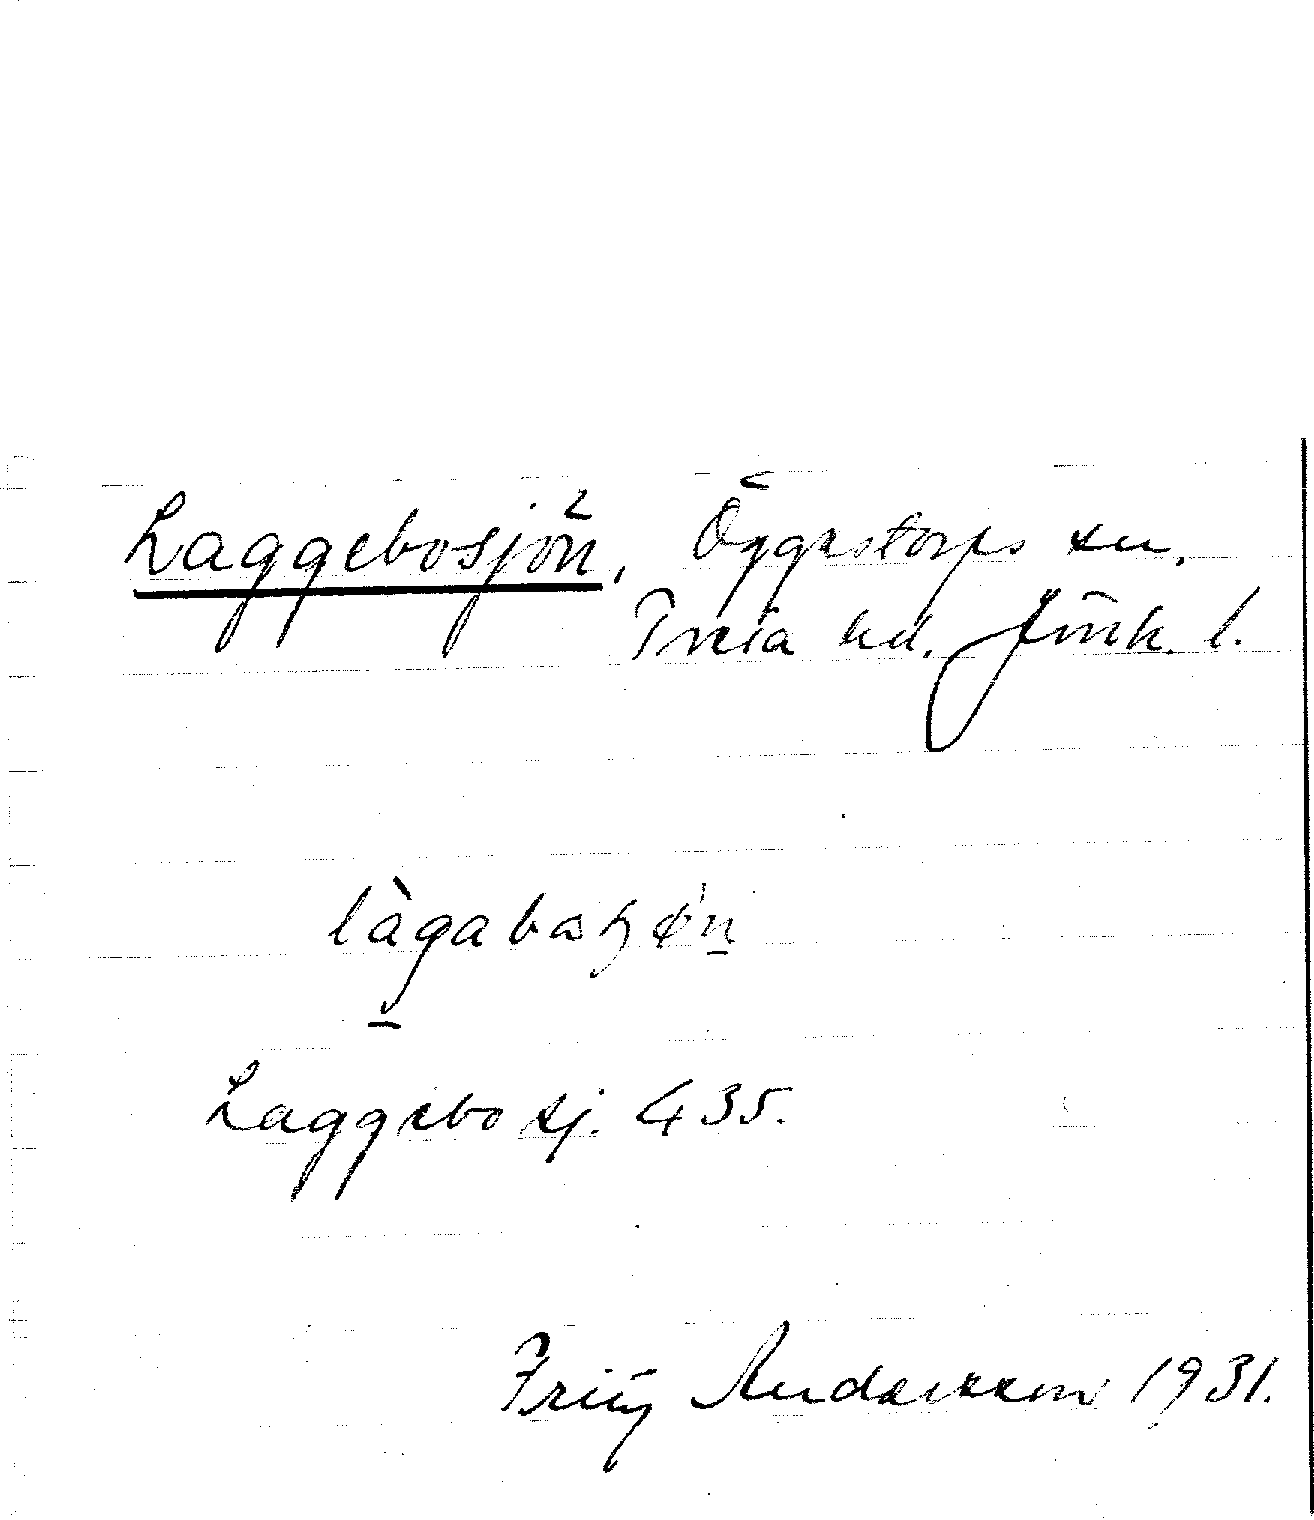 Laggebosjön, Öggestorps sn.
Tveta hd. Jönk. l.
làgabasȷ̌ø̀n
Laggebo sj. 435.
Fritz Andersson 1931.